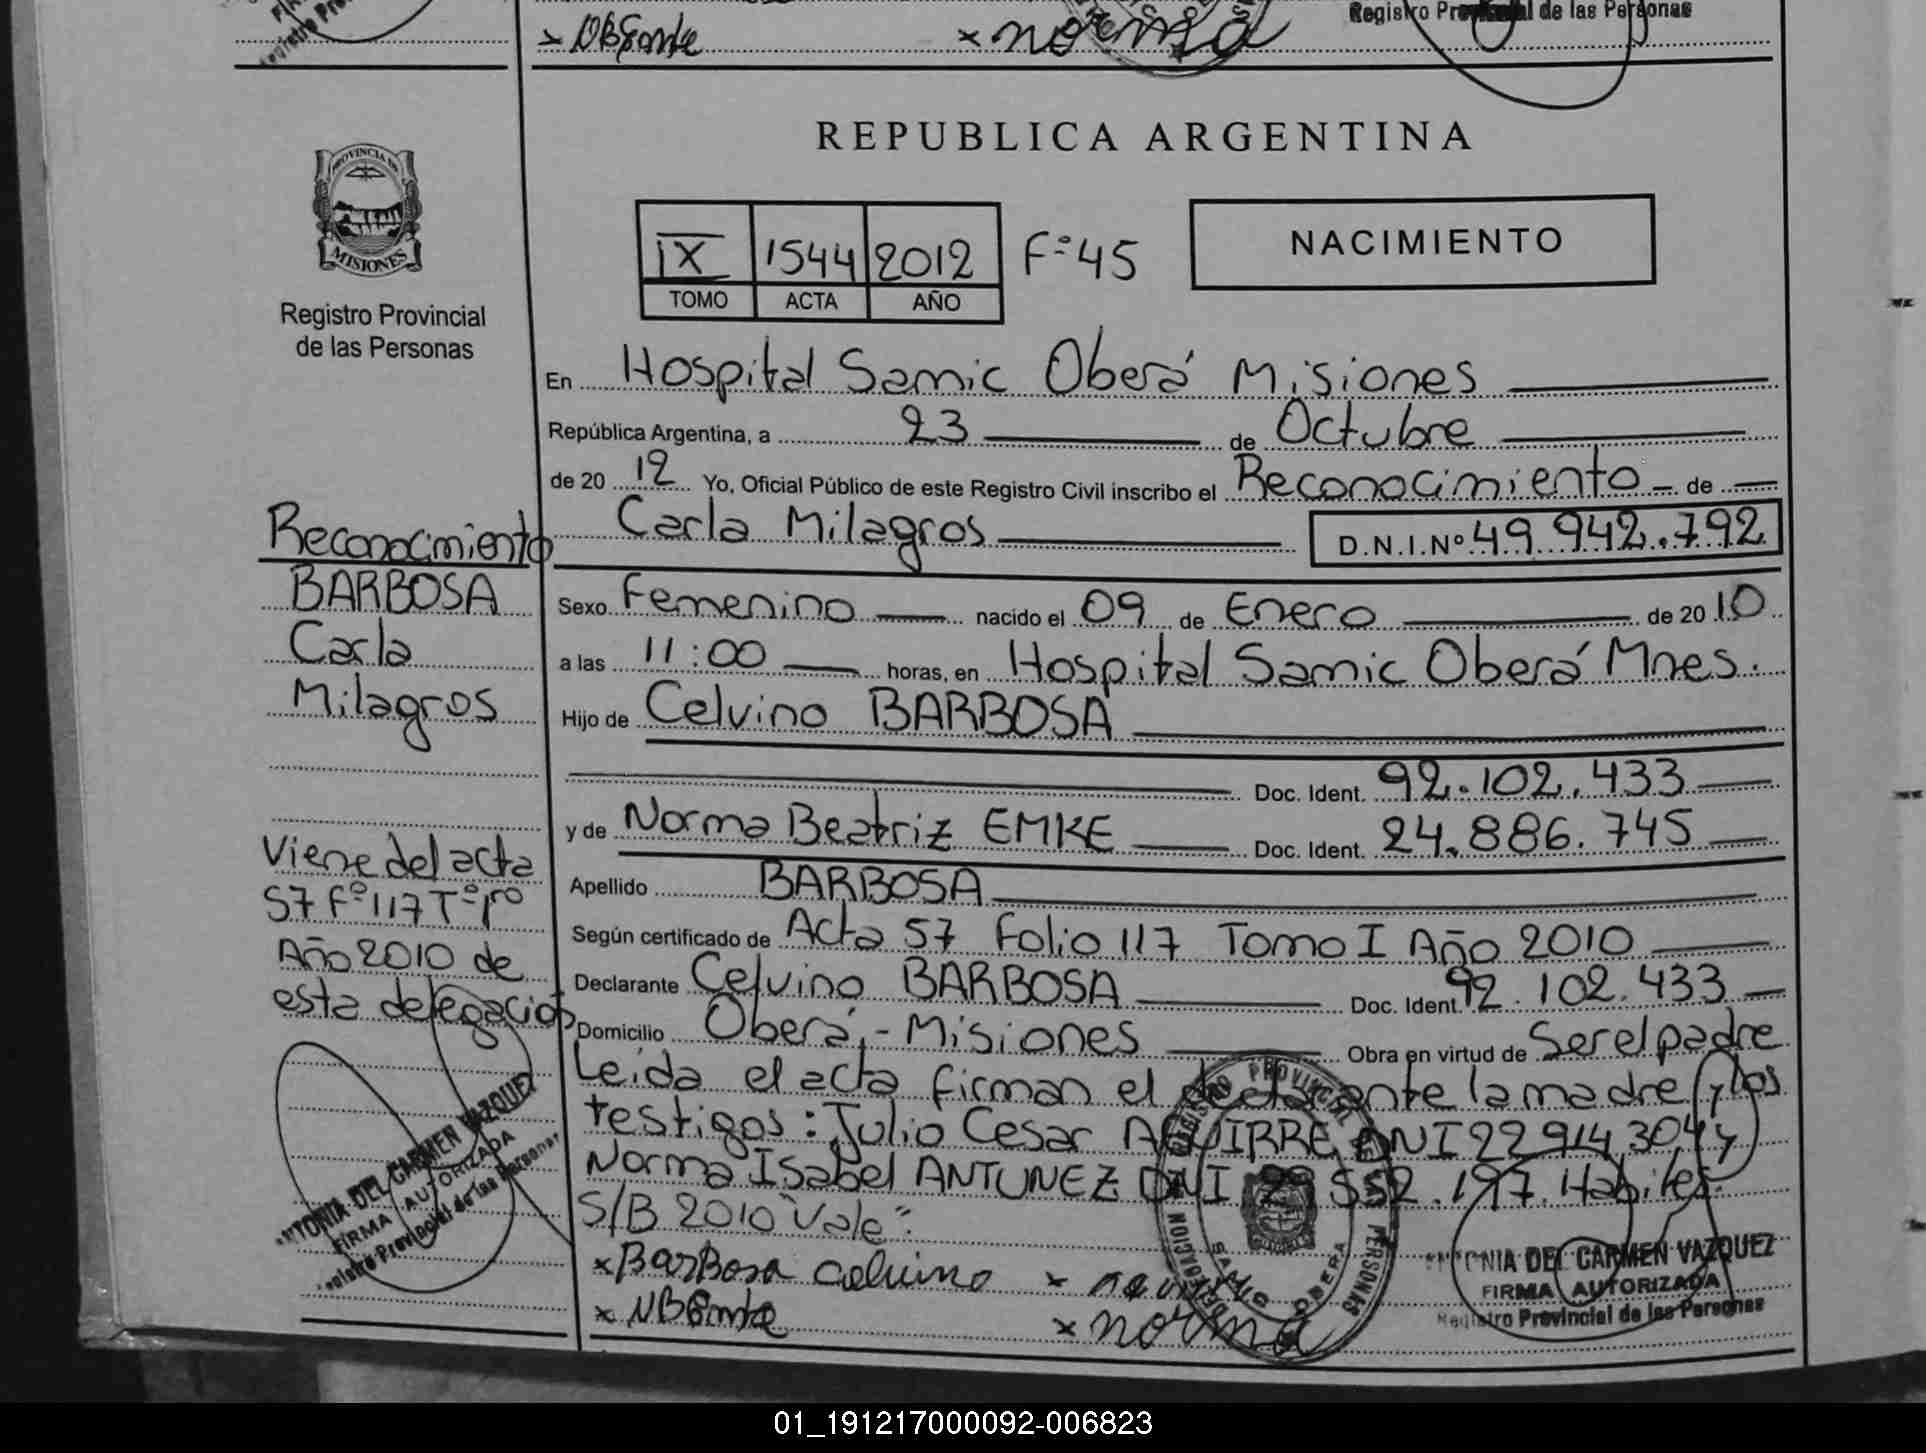 Registro Provincial de las Personas
× NBEmke × norma
REPUBLICA ARGENTINA
PROVINCIA DE
MISIONES
Registro Provincial
de las Personas
IX 1544 2012 Fº 45
TOMO ACTA AÑO
NACIMIENTO
En Hospital Samic Oberá Misiones
República Argentina, a 23 de Octubre
de 20 12 Yo, Oficial Público de este Registro Civil inscribo el Reconocimiento de
Carla Milagros D.N.I.Nº 49.942.792
Sexo Femenino nacido el 09 de Enero de 20 10
a las 11:00 horas, en Hospital Samic Oberá Mnes.
Hijo de Celvino BARBOSA
Doc. Ident. 92.102.433
y de Norma Beatriz EMKE Doc. Ident. 24.886.745
Apellido BARBOSA
Según certificado de Acta 57 Folio 117 Tomo I Año 2010
Declarante Celvino BARBOSA Doc. Ident. 92.102.433
Domicilio Oberá,- Misiones Obra en virtud de Ser el padre
Leida el acta firman el declarante la madre y los
testigos: Julio Cesar AGUIRRE DNI 22 914 304 y
Norma Isabel ANTUNEZ DNI 552.197. Habiles.
S/B 2010 "Vale":
× Barbosa celvino ×
× NBEmke × norma
REGISTRO PROVINCIAL DE LAS PERSONAS
DELEGACION
SAMIC OBERA
ANTONIA DEL CARMEN VAZQUEZ
FIRMA AUTORIZADA
Registro Provincial de las Personas
Reconocimiento
BARBOSA
Carla
Milagros
Viene del acta
57 Fº 117 Tº 1ro
Año 2010 de
esta delegacion
ANTONIA DEL CARMEN VAZQUEZ
FIRMA AUTORIZADA
Registro Provincial de las Personas
01_191217000092-006823